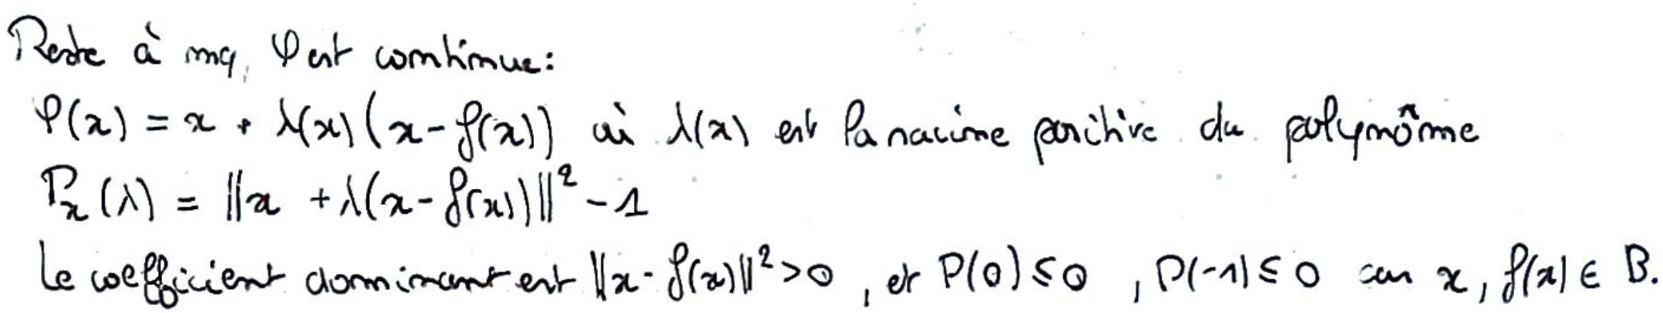 Reste à mq, φ est continue:
φ(x) = x + λ(x)(x-f(x)) où λ(x) est la racine positive du polynôme
Pₓ(λ) = ||x + λ(x-f(x))||² - 1
Le coefficient dominant est ||x-f(x)||²>0, et P(0)≤0, P(-1)≤0 car x, f(x) ∈ B.